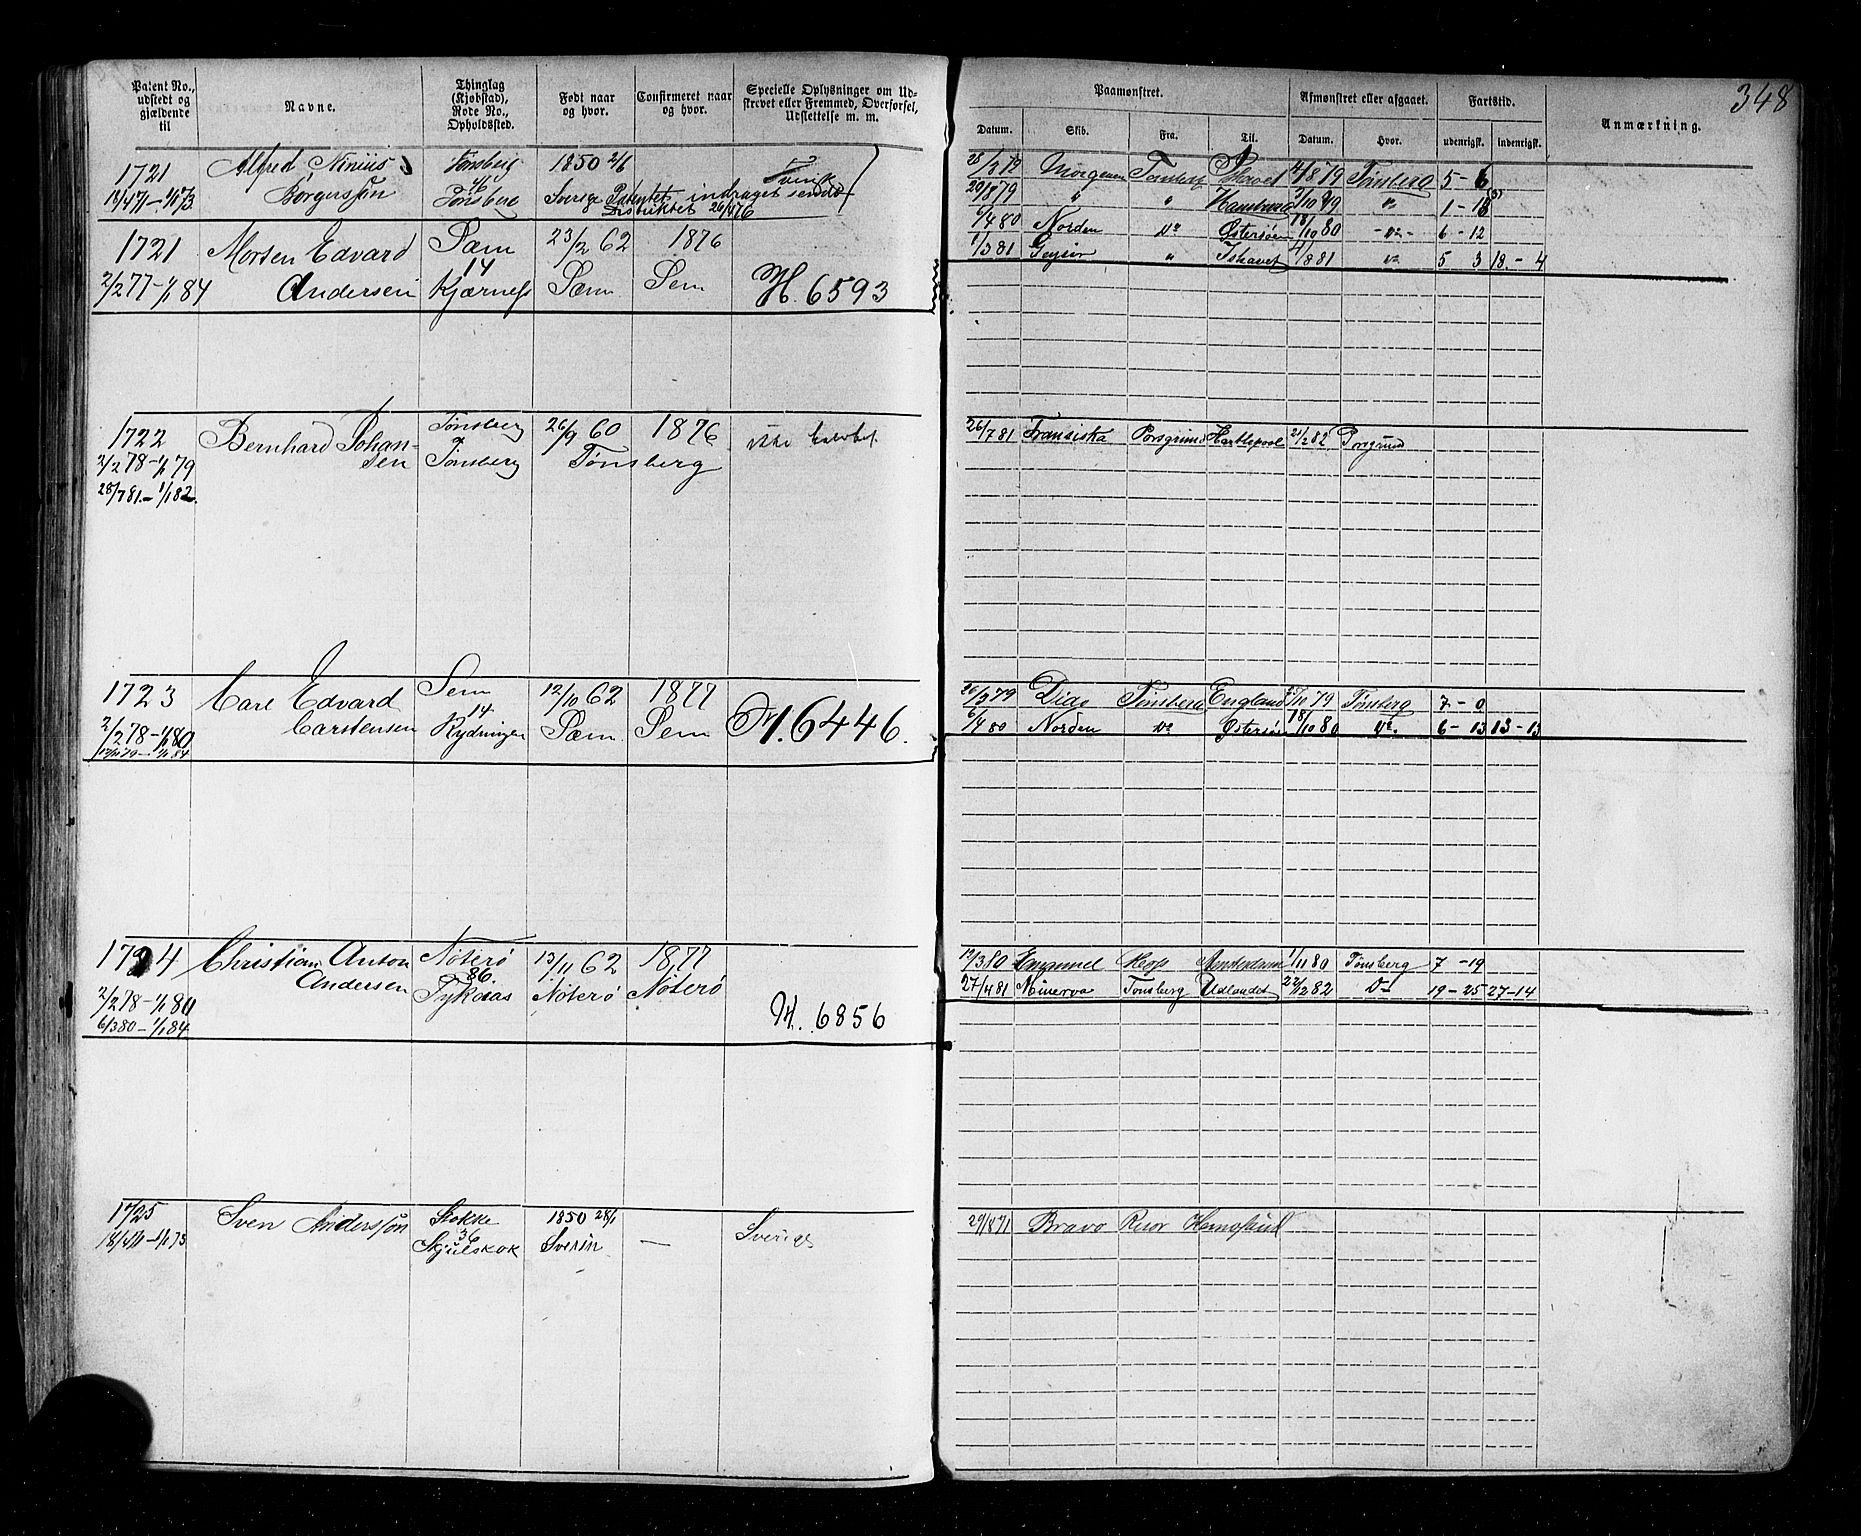 348
Patent No., udstedt og gjældende til
Navne.
Thinglag (Kjøbstad), Rode No., Opholdssted.
Født naar og hvor.
Confirmeret naar og hvor.
Specielle Oplysninger om Udskrevet eller Fremmed, Overførsel, Udslettelse m. m.
Paamønstret.
Afmønstret eller afgaaet.
Fartstid.
Anmærkning.
Datum. Skib. Fra. Til. Datum. Hvor. udenrigsk. indenrigsk.
1721 Alfred Tønsberg 1850 2/6 Svensk
Børgersson Tønsberg Sverige Patentet indraget
Distriktet 26/4 76
1721 Morten Edvard Sæm 23/2 62 1876
2/2 77-1/1 84 Andersen 14 Kjærnes Sæm Sem H. 6593
Morgenen Tønsberg Ishavet 4/8 79 Tønsberg 5-6
20/8 79 " " Hamburg " 1-18
6/4 80 Norden Do Østersøen 18/10 80 -Do- 6-12
1/3 81 Geysir " Ishavet 4/8 81 Do 5 3 18-4
1722 Bernhard Johan- Tønsberg 26/9 60 1876 ikke
2/2 78-1/1 79 sen Tønsberg Tønsberg
28/7 81-1/1 82
26/7 81 Fransiska Porsgrund Hartlepool 21/2 82 Porsgrund
1723 Carl Edvard Sem 12/10 62 1877
2/2 78-1/1 80 Carstensen 14 Rydningen Sæm Sem M. 6446.
26/2 79 Dido Tønsberg England 27/10 79 Tønsberg 7-0
6/4 80 Norden Do Østersøen 18/10 80 Do 6-13 13-13
1724 Christian Anton Nøterø 13/11 62 1877
2/2 78-1/1 80 Andersen 86 Nøterø Nøterø
6/3 80-1/1 84 M. 6856
19/3 80 Emanuel 1/11 80 Tønsberg 7-19
27/4 81 Minerva Tønsberg Udlandet 22/12 82 Do 19-25 27-14
1725 Sven Andersson Stokke 1850 28/1 Sverige
18/4 71-1/1 73 36 Skjulskok — 
29/8 71 Bravo